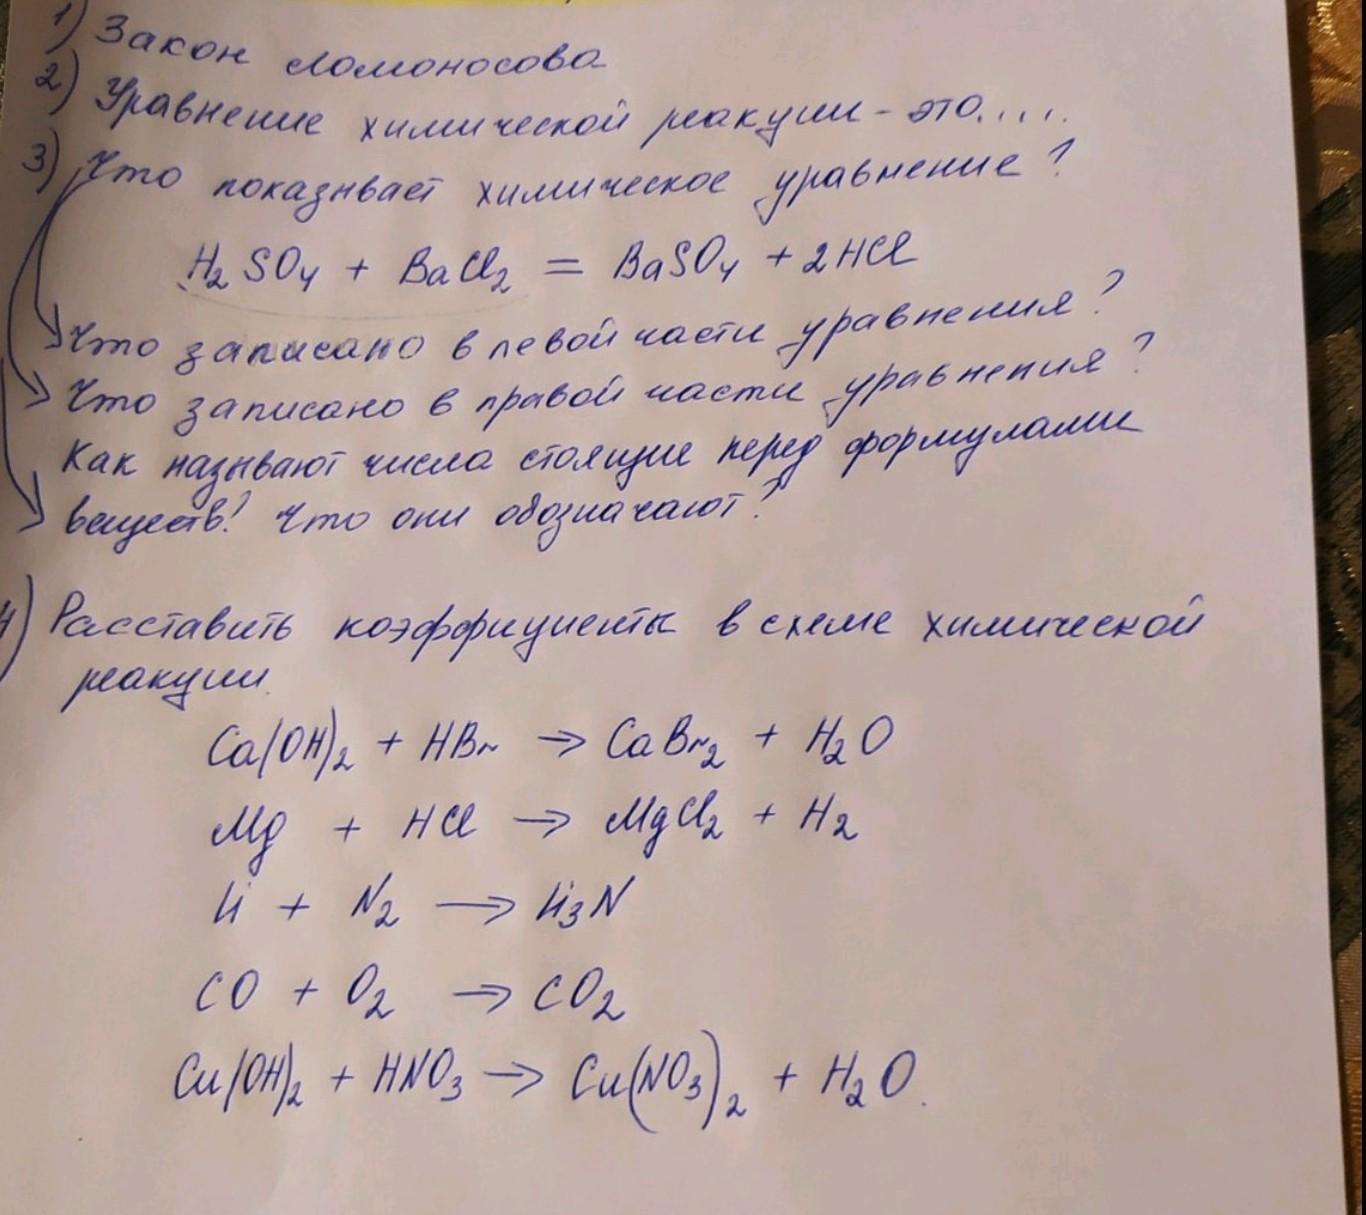 1) Закон Ломоносова
2) Уравнение химической реакции - это.....
3) Что показывает химическое уравнение?
H₂SO₄ + BaCl₂ = BaSO₄ + 2HCl
Что записано в левой части уравнения?
Что записано в правой части уравнения?
Как называют числа стоящие перед формулами
веществ? Что они обозначают?
4) Расставить коэффициенты в схеме химической
реакции.
Ca(OH)₂ + HBr → CaBr₂ + H₂O
Mg + HCl → MgCl₂ + H₂
Li + N₂ → Li₃N
CO + O₂ → CO₂
Cu(OH)₂ + HNO₃ → Cu(NO₃)₂ + H₂O.